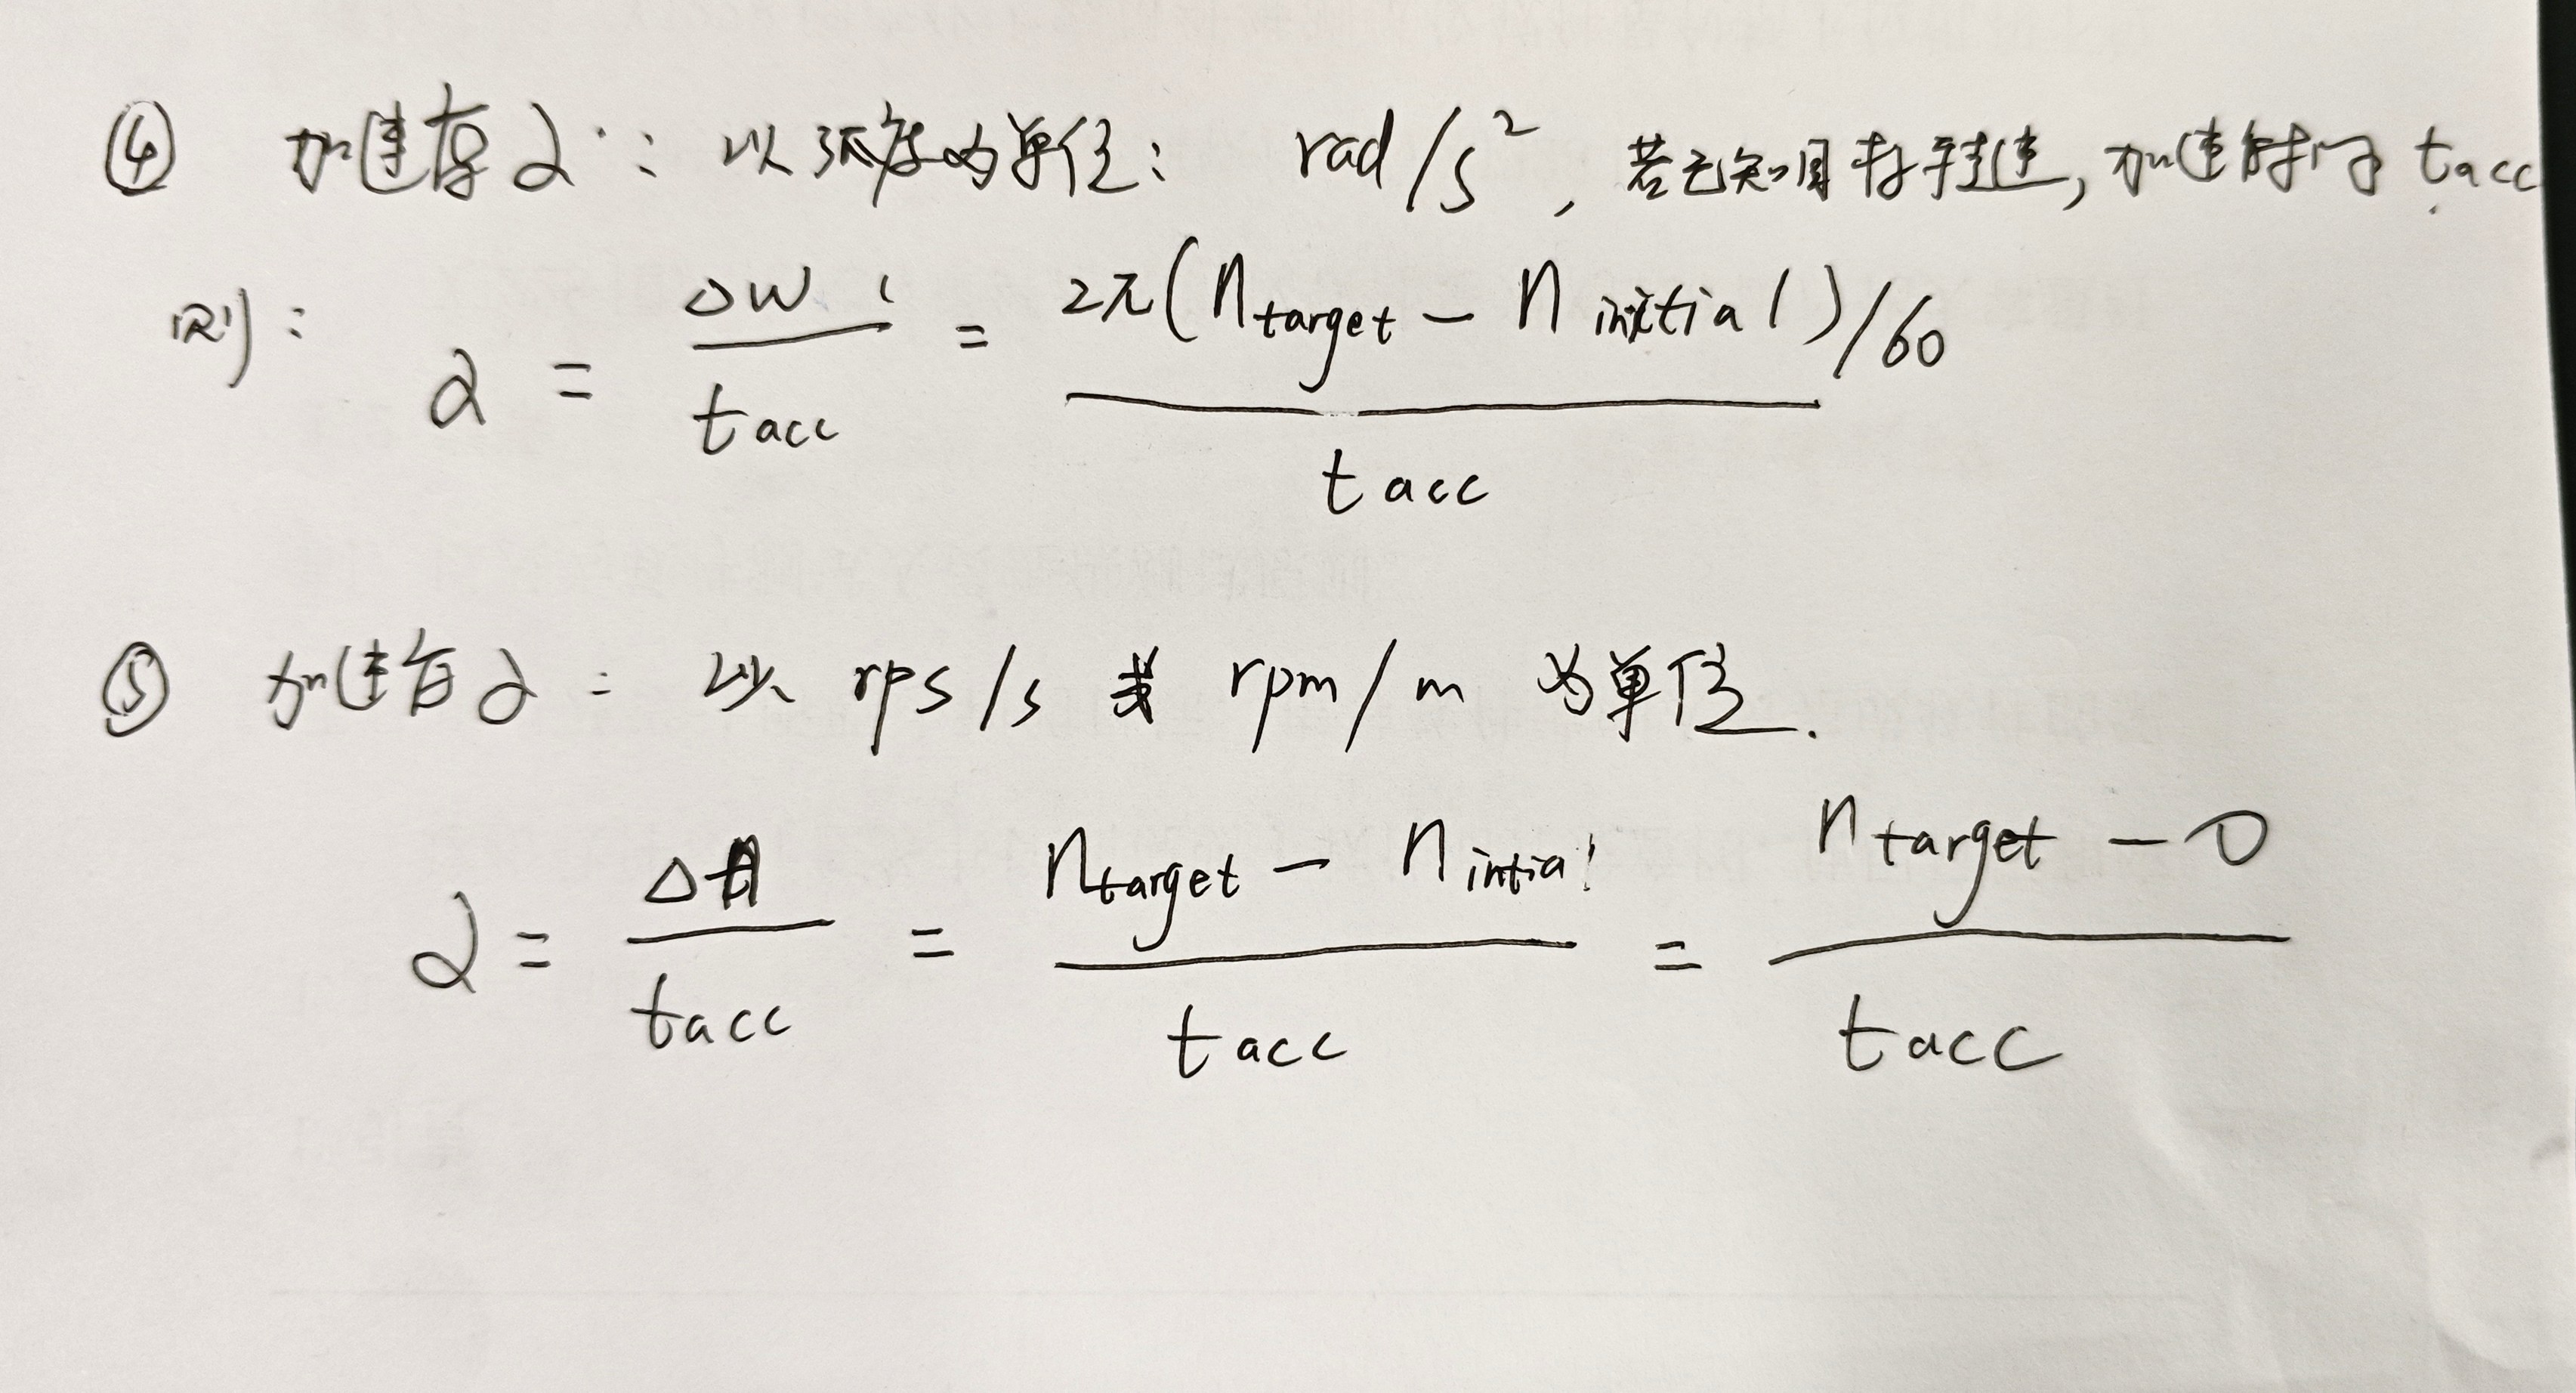 ④ 加速度α：以弧度为单位： rad/s²，若已知目标转速，加速时间 tacc
则： α = Δw / tacc = 2π(ntarget - ninitial)/60 / tacc
⑤ 加速度α：以 rps/s 或 rpm/m 为单位.
α = Δn / tacc = ntarget - nintial / tacc = ntarget - 0 / tacc